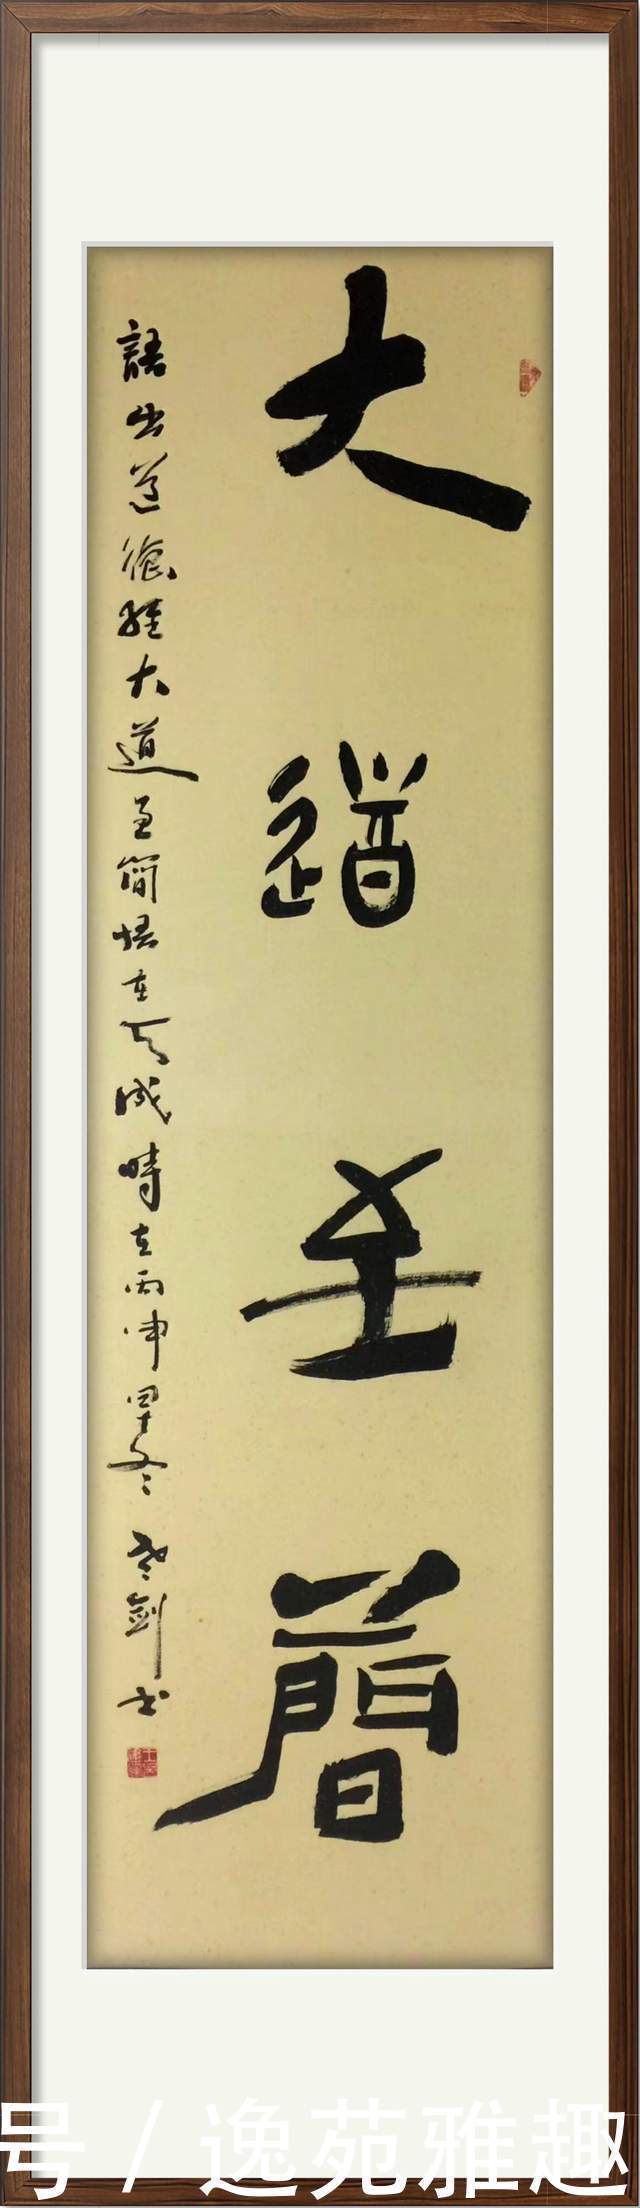 大道至簡
語出道德經大道至簡悟在天成時在丙申冬劍书
号 / 逸苑雅趣